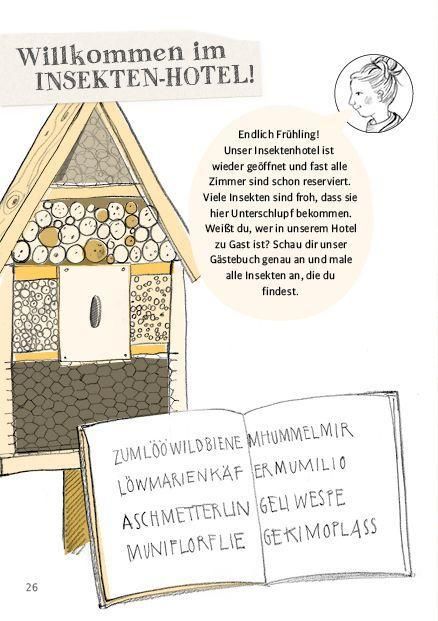 Willkommen im
INSEKTEN-HOTEL!
Endlich Frühling!
Unser Insektenhotel ist
wieder geöffnet und fast alle
Zimmer sind schon reserviert.
Viele Insekten sind froh, dass sie
hier Unterschlupf bekommen.
Weißt du, wer in unserem Hotel
zu Gast ist? Schau dir unser
Gästebuch genau an und male
alle Insekten an, die du
findest.
ZUMLÖÖWILDBIENE MHUMMELMIR
LÖWMARIENKÄF ERMUMILIO
ASCHMETTERLIN GELIWESPE
MUNIFLORFLIE GEKIMOPLASS
26